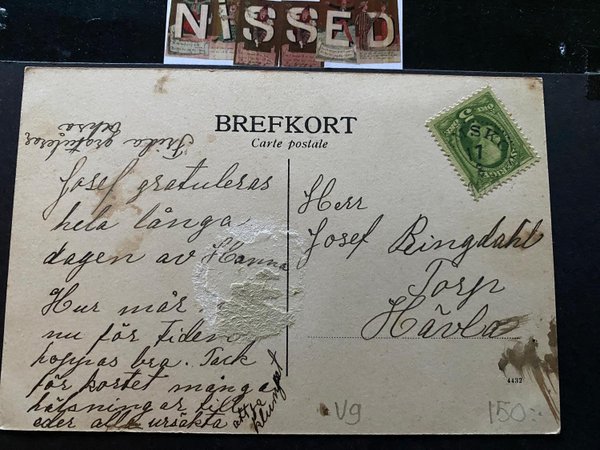 NISSED
BREFKORT
Carte postale
Frida gratulerar
också
Josef gratuleras
hela långa
dagen av Hanna
Hur mår
nu för Tiden
hoppas bra. Tack
för kortet många
hälsningar till
eder alla ursäkta
klumpet
Herr
Josef Ringdahl
Torp
Hävla
4432
Vg
150:-